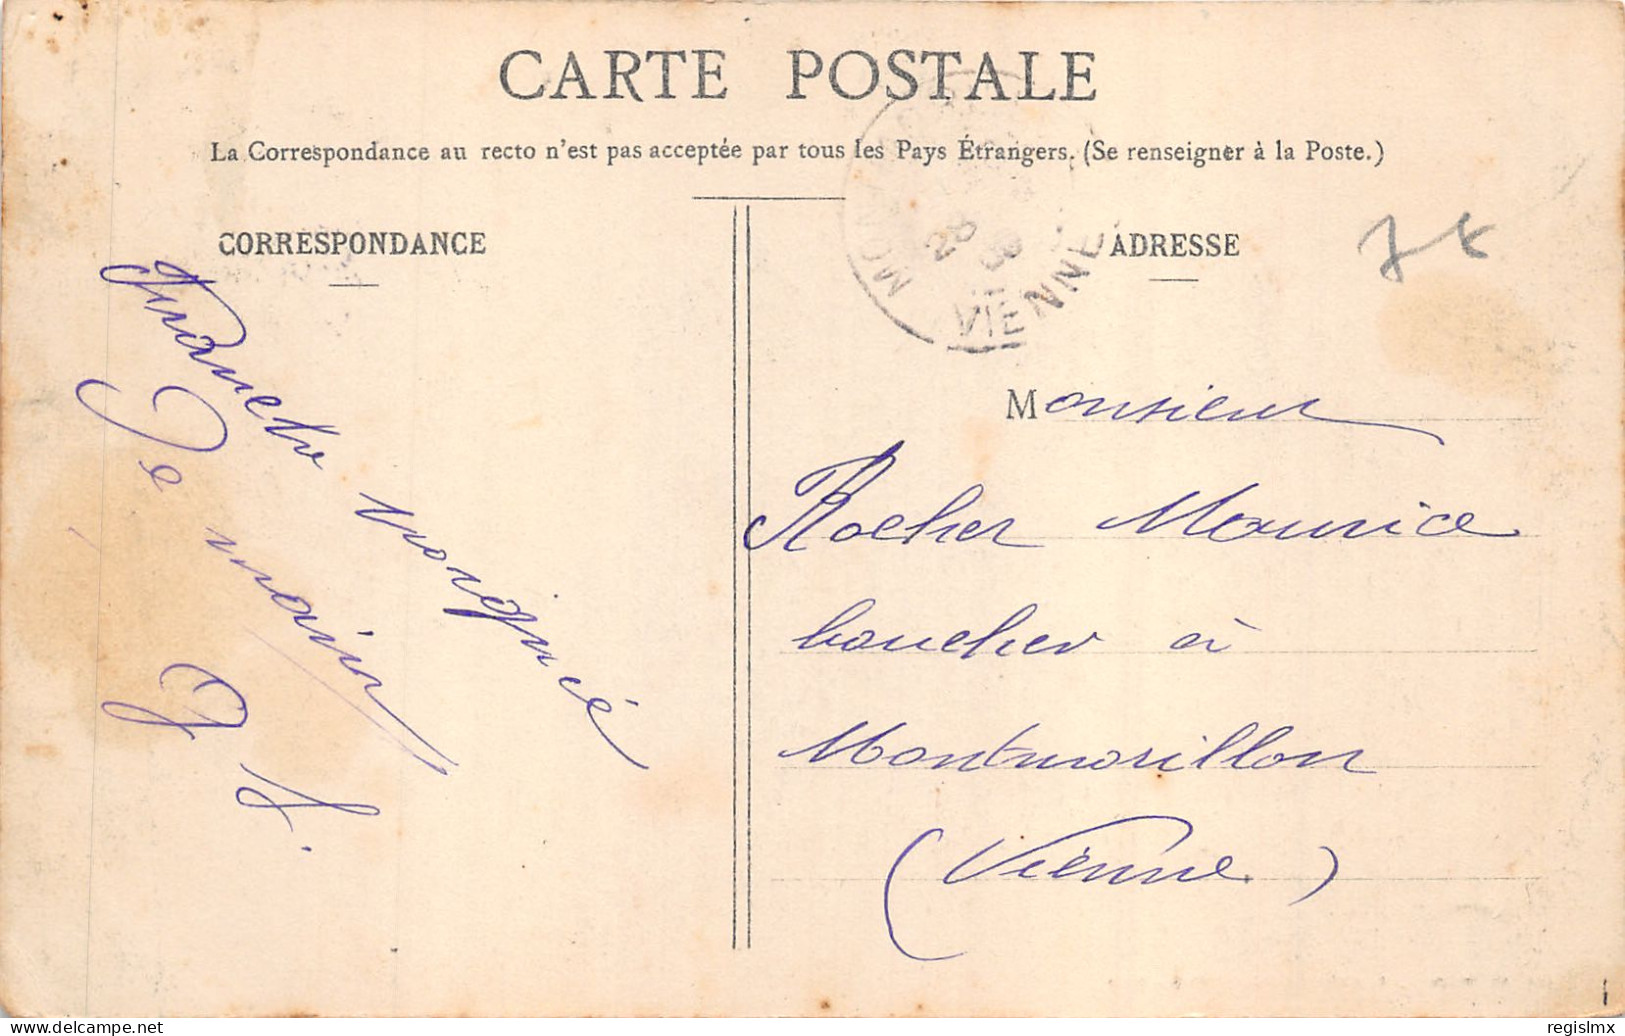 CARTE POSTALE
La Correspondance au recto n'est pas acceptée par tous les Pays Étrangers. (Se renseigner à la Poste.)
CORRESPONDANCE
ADRESSE
28
VIENNE
Franche poignée
De main
Monsieur
Rocher Maurice
boucher à
Montmorillon
(Vienne)
www.delcampe.net
regislmx